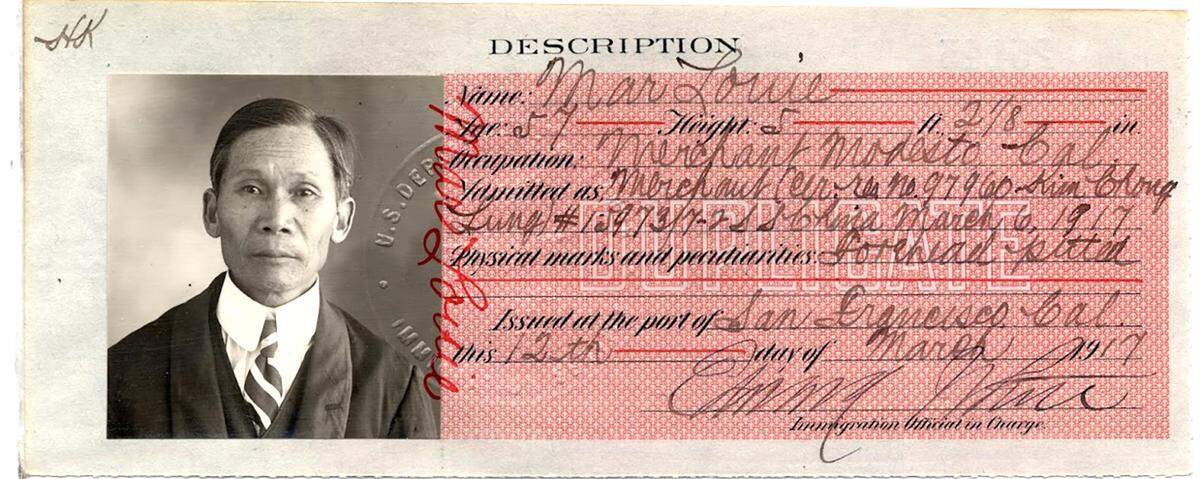 HK
DESCRIPTION
Name: Mar Louie
Age: 57 Height: 5 ft. 2 1/8 in.
Occupation: Merchant Modesto Cal.
Admitted as Merchant Cer. res no 97960 Kim Chong
Lung # 15973/7-2 SS China March 6, 1917
Physical marks and peculiarities: Forehead pitted
DUPLICATE
Issued at the port of San Francisco Cal.
this 12th day of March 1917
Immigration Official in Charge.
Mar Louie
U.S. DEP
IMM